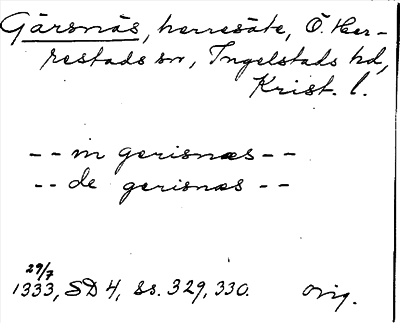 Gärsnäs, herresäte, Ö. Her-
restads sn, Ingelstads hd,
Krist. l.
-- in gerisnæs --
-- de gerisnæs --
29/7
1333, SD 4, ss. 329, 330. orig.